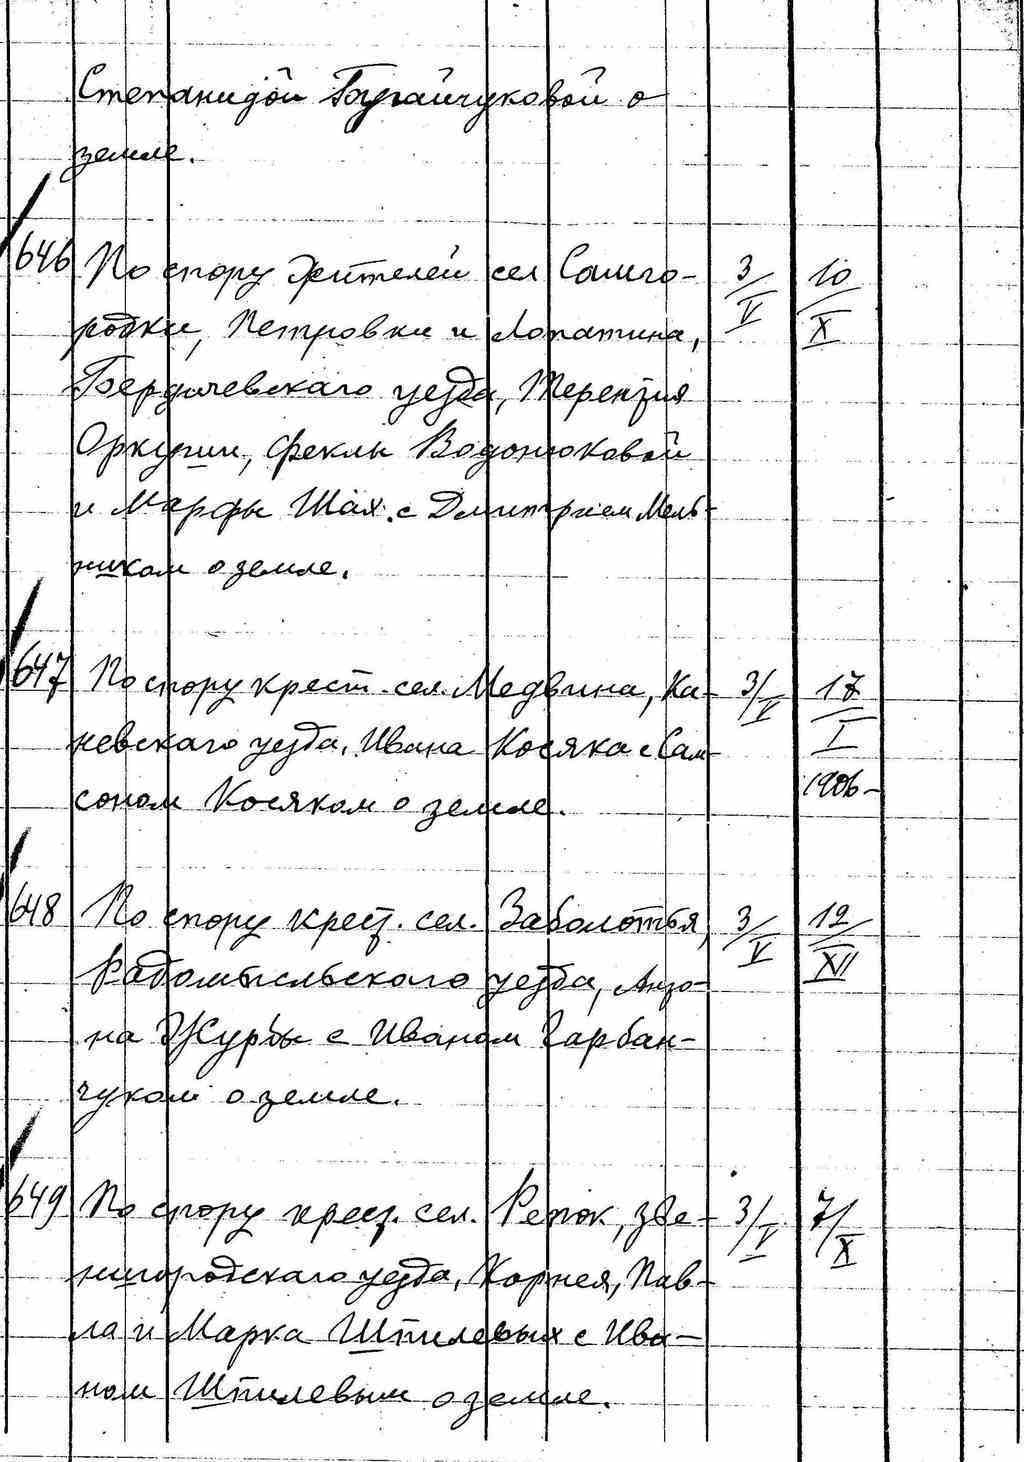 Степанидой Бугайчуковой о
земле.
646 По спору жителей сел Самго- 3/V 10/X
родки, Петровки и Лопатина,
Бердичевскаго уезда, Терентия
Оркуши, Феклы Водонюковой
и Марфы Шах с Дмитрием Мель-
ником о земле.
647 По спору крест. сел. Медвина, Ка- 3/V 17/I
невскаго уезда, Ивана Косяка с Сам-
соном Косяком о земле. 1906
648 По спору крест. сел. Заболотья, 3/V 12/XII
Радомысльского уезда, Анто-
на Журбы с Иваном Гарбан-
чуком о земле.
649 По спору крест. сел. Репок, Зве- 3/V 7/X
нигородскаго уезда, Корнея, Пав-
ла и Марка Шпилевых с Ива-
ном Шпилевым о земле.